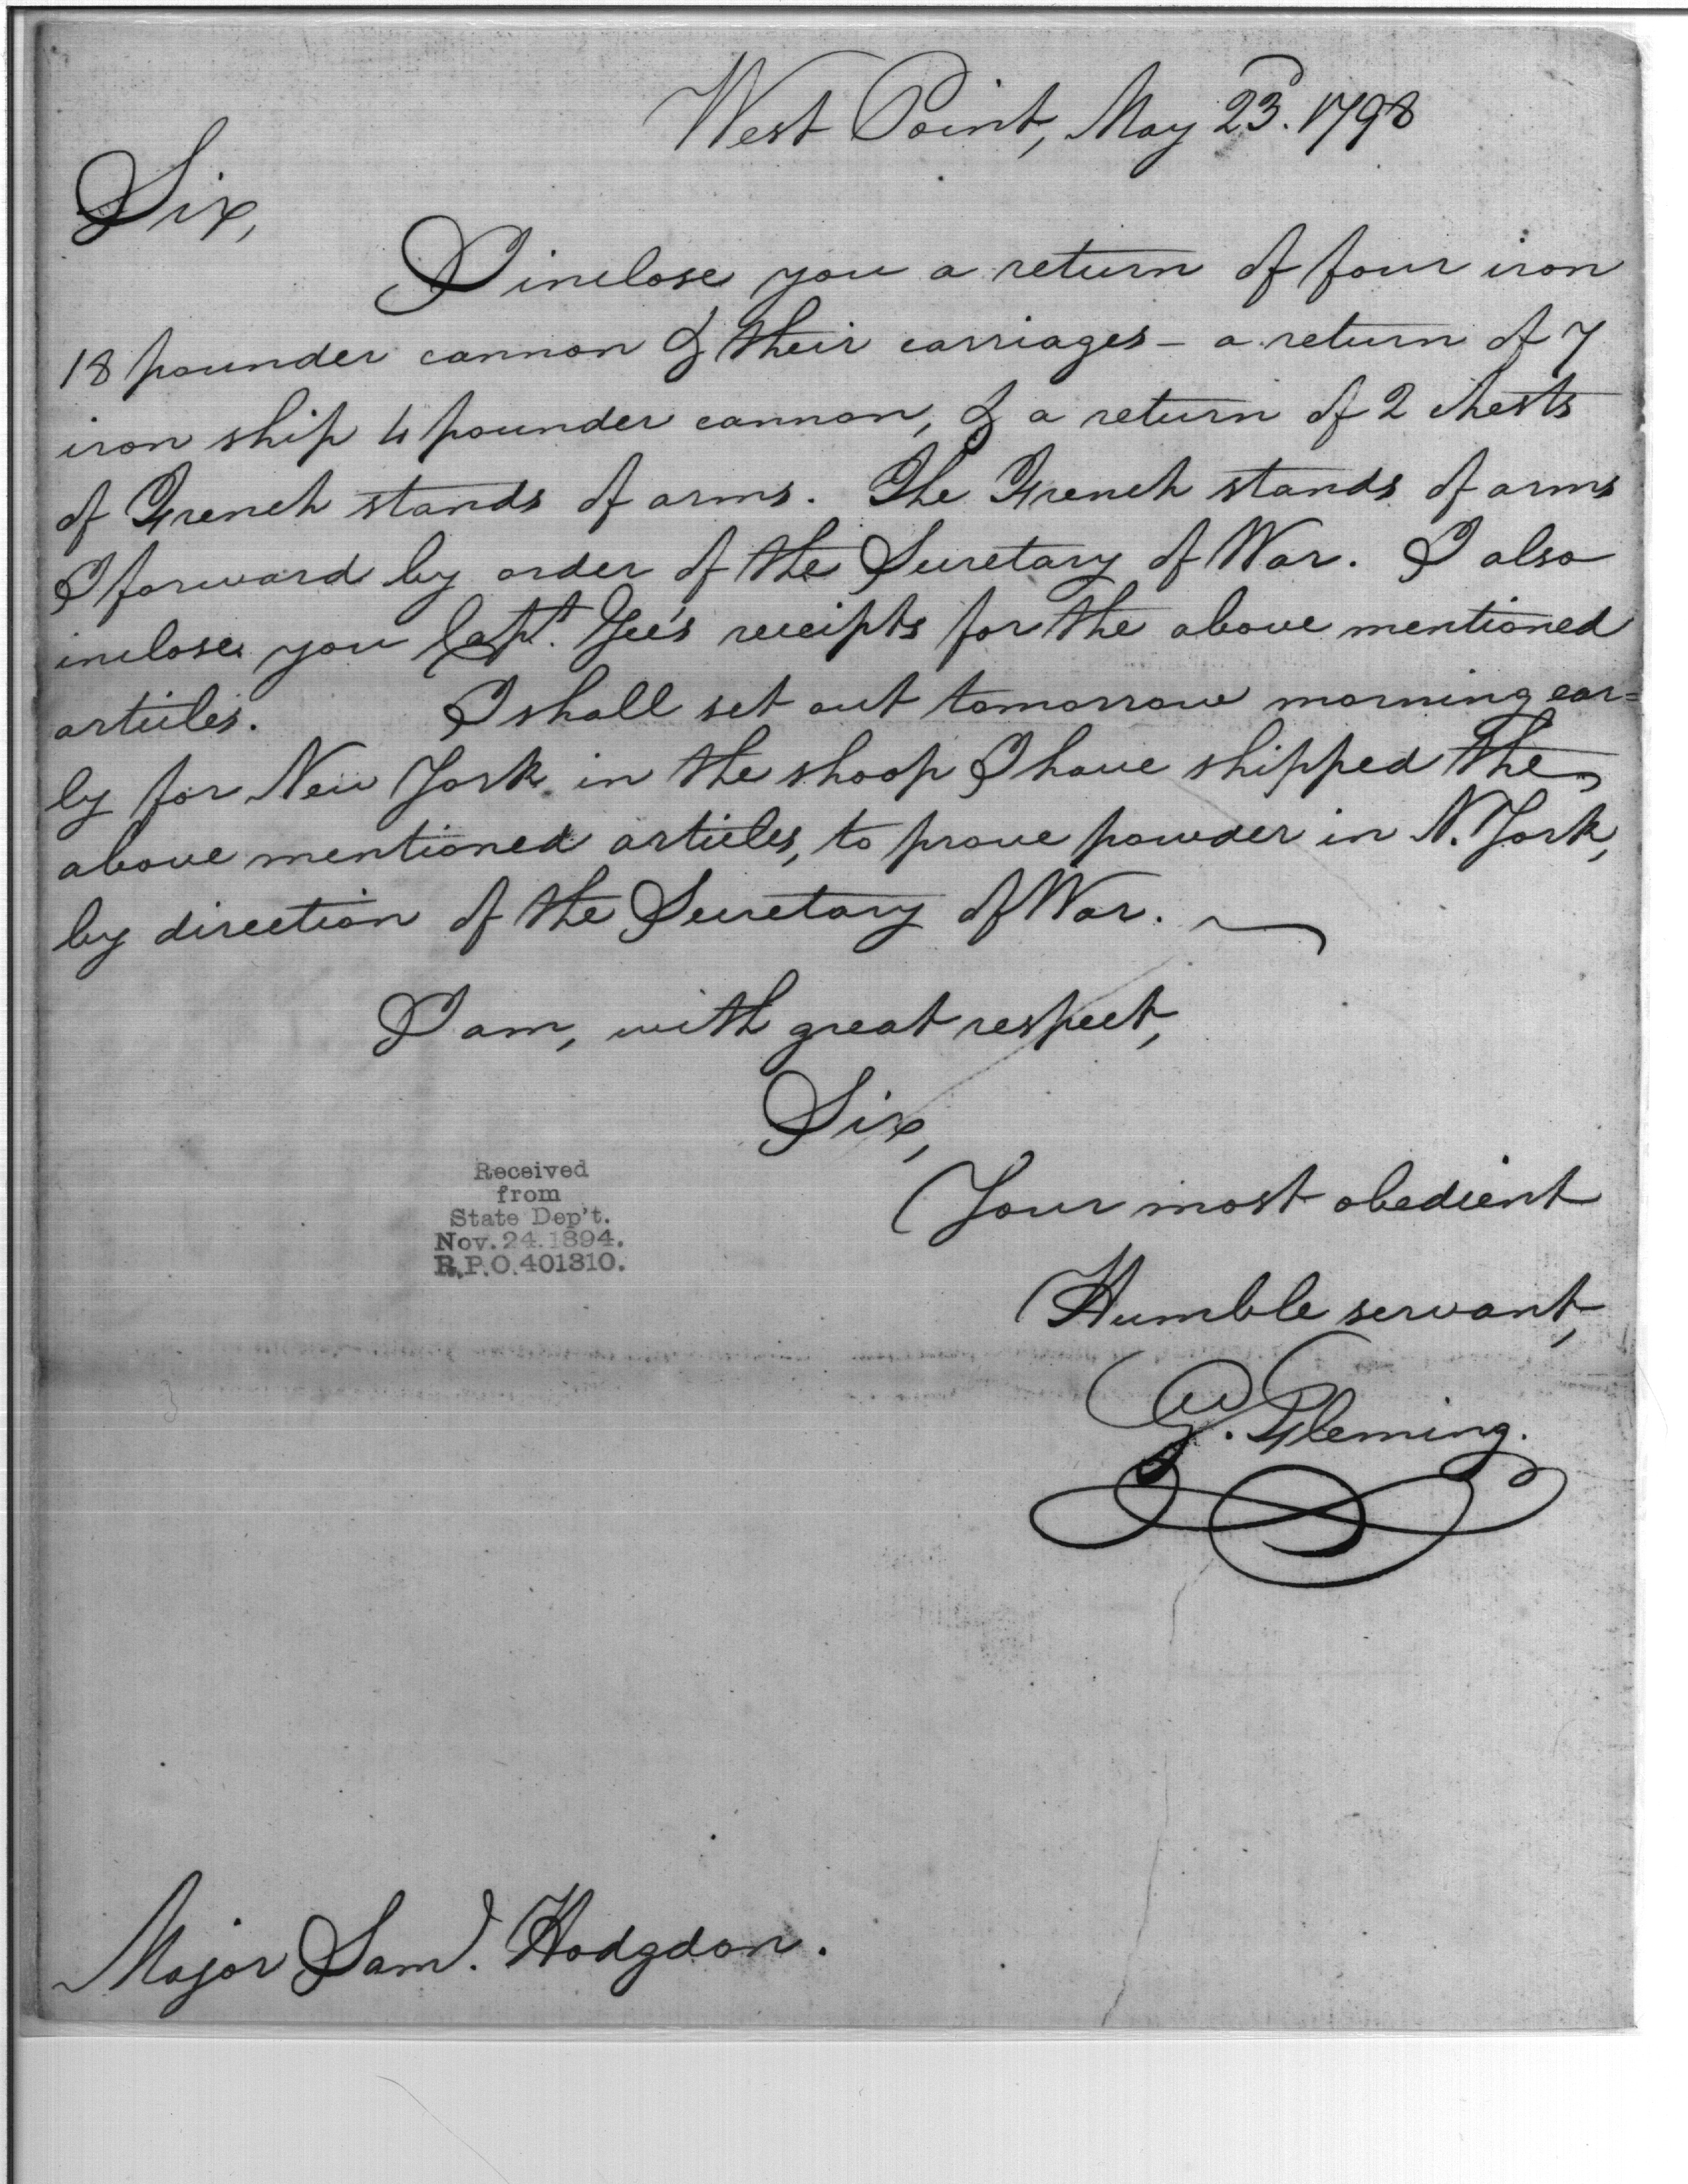 West Point, May 23d. 1798
Sir,
I inclose you a return of four iron
18 pounder cannon & their carriages - a return of 7
iron ship 4 pounder cannon, & a return of 2 chests
of French stands of arms. The French stands of arms
I forward by order of the Secretary of War. I also
inclose you Capt. Yee's receipts for the above mentioned
articles. I shall set out tomorrow morning ear=
ly for New York in the shoop I have shipped the
above mentioned articles, to prove powder in N. York,
by direction of the Secretary of War.
I am, with great respect,
Sir,
Your most obedient
Humble servant,
G. Fleming.
Received
from
State Dep't.
Nov. 24. 1894.
R.P.O. 401310.
Major Saml. Hodgdon.